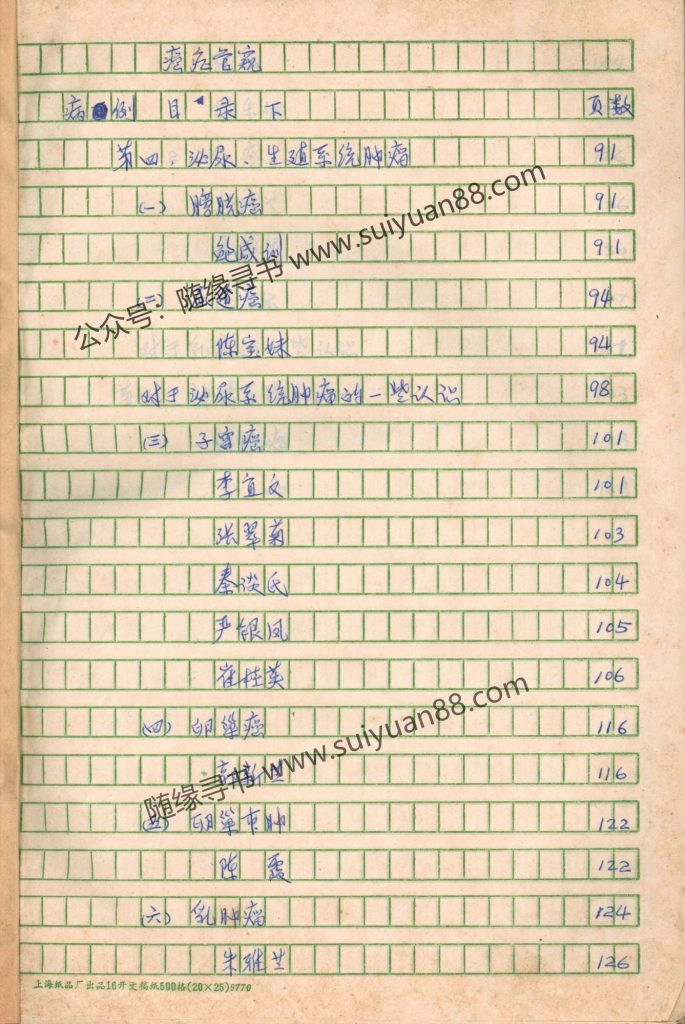 癌症管窥
病例目录下 页数
第四、泌尿、生殖系统肿瘤 91
(一) 膀胱癌 91
鲍成训 91
(二) 道癌 94
陈宝妹 94
对于泌尿系统肿瘤的一些认识 98
(三) 子宫癌 101
李宜文 101
张翠菊 103
秦谈氏 104
严银凤 105
崔桂英 106
(四) 卵巢癌 116
116
(五) 卵巢囊肿 122
陈霞 122
(六) 乳肿瘤 124
朱雅兰 126
上海纸品厂出品16开文稿纸500格(20×25)9770
公众号：随缘寻书 www.suiyuan88.com
随缘寻书 www.suiyuan88.com